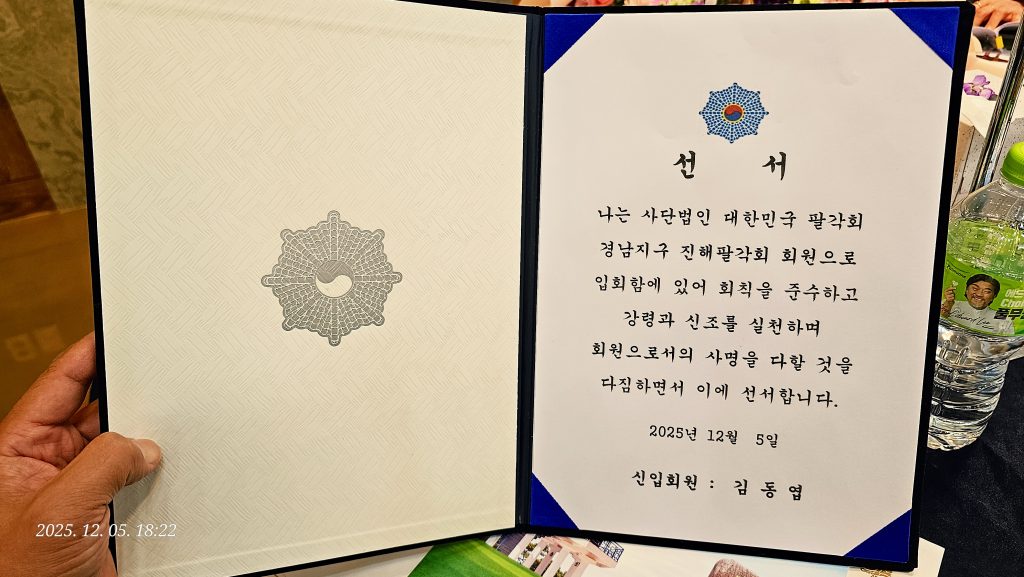 선 서
나는 사단법인 대한민국 팔각회
경남지구 진해팔각회 회원으로
입회함에 있어 회칙을 준수하고
강령과 신조를 실천하며
회원으로서의 사명을 다할 것을
다짐하면서 이에 선서합니다.
2025년 12월 5일
신입회원 : 김 동 엽
2025. 12. 05. 18:22